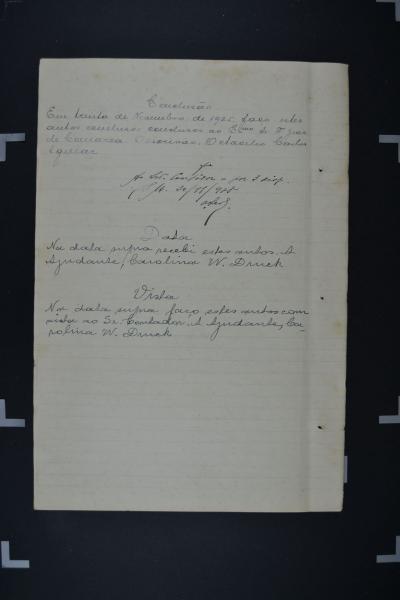 Conclusão
Em trinta de Novembro de 1925, faço estes
autos conclusos ao Exmo Sr. Dr. Juiz
de Comarca
Ao Sr. Contador
30/11/925
Data
Na data supra recebi estes autos. A
Ajudante, Carolina W. Druck
Vista
Na data supra faço estes autos com
vista ao Sr. Contador. A Ajudante, Ca-
rolina W. Druck